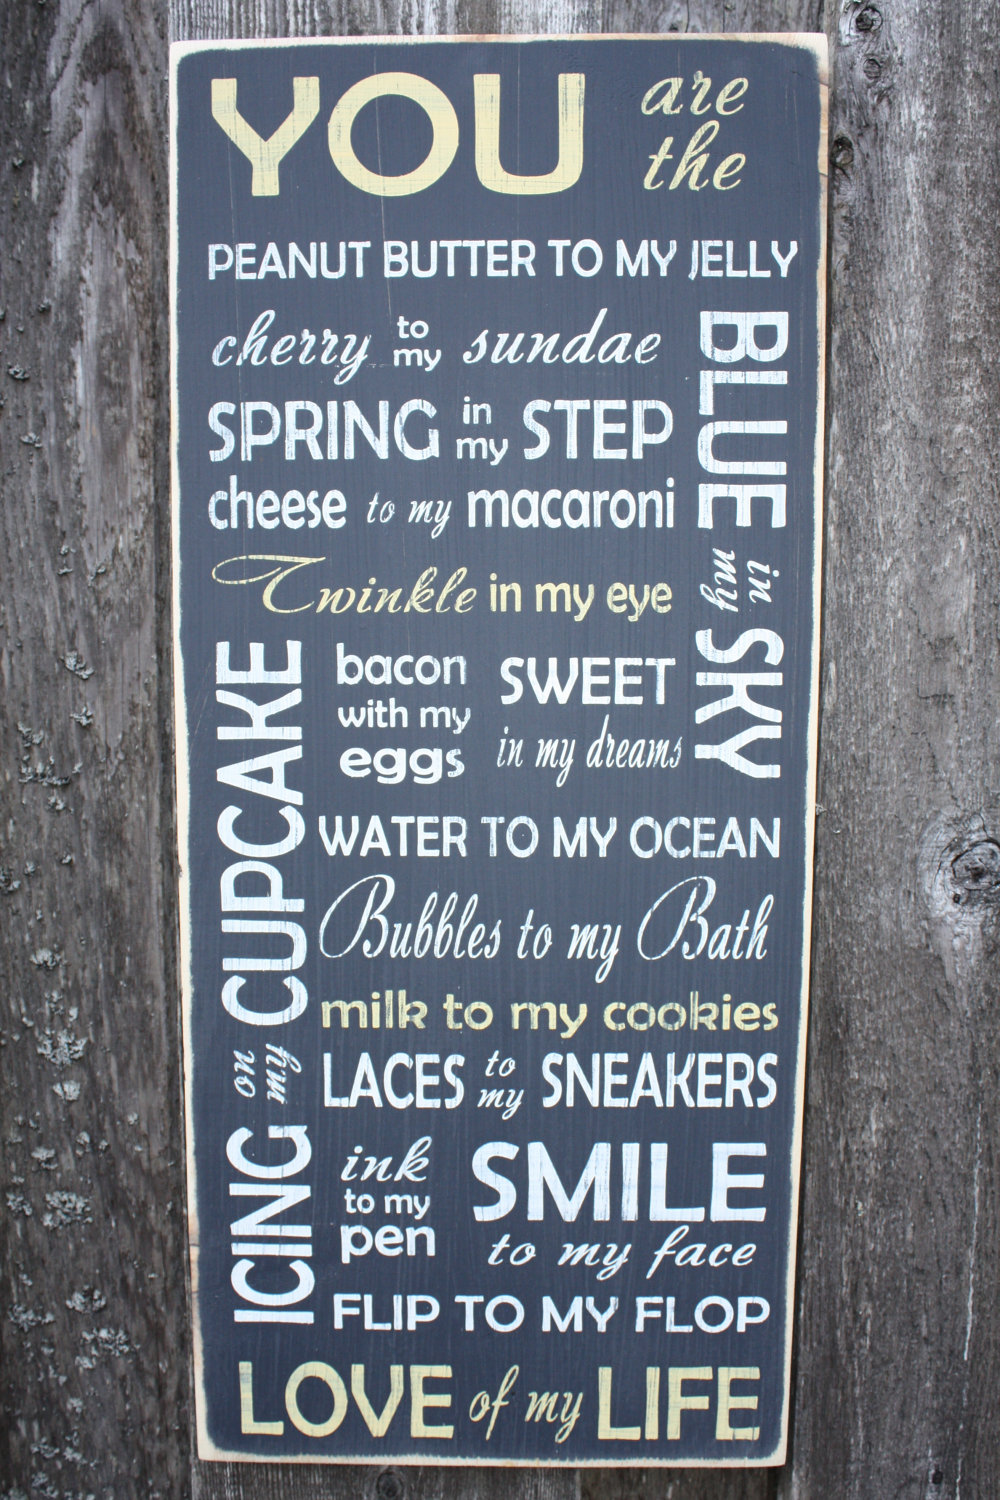 YOU are the
PEANUT BUTTER TO MY JELLY
cherry to my sundae
SPRING in my STEP
cheese to my macaroni
BLUE in my SKY
Twinkle in my eye
bacon
with my
eggs
SWEET
in my dreams
WATER TO MY OCEAN
Bubbles to my Bath
milk to my cookies
LACES to my SNEAKERS
ICING on my CUPCAKE
ink
to my
pen
SMILE
to my face
FLIP TO MY FLOP
LOVE of my LIFE